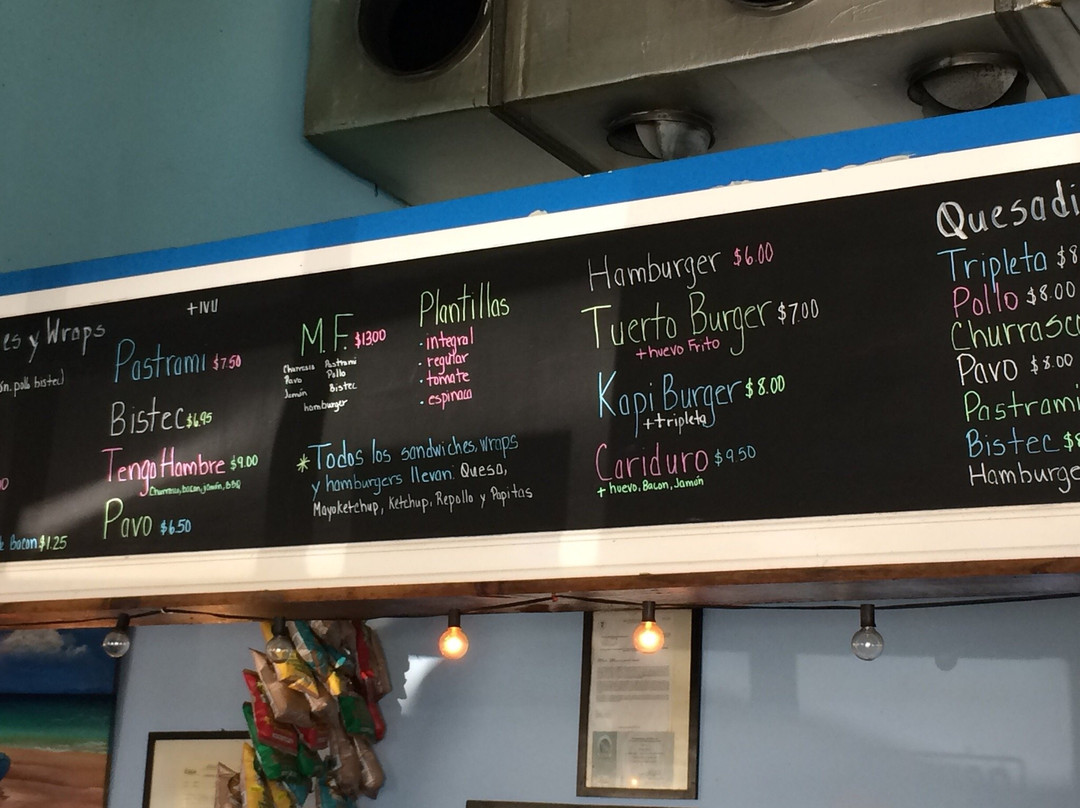 es y Wraps
ón, pollo bistec)
Bacon $1.25
+IVU
Pastrami $7.50
Bistec $6.95
Tengo Hambre $9.00
Churrasco, bacon, jamón, BBQ
Pavo $6.50
M.F. $1300
Churrasco Pastrami
Pavo Pollo
Jamón Bistec
hamburger
Plantillas
· integral
· regular
· tomate
· espinaca
*Todos los sandwiches, wraps
y hamburgers llevan: Queso,
Mayoketchup, Ketchup, Repollo y Papitas
Hamburger $6.00
Tuerto Burger $7.00
+huevo Frito
Kapi Burger $8.00
++tripleta
Cariduro $9.50
+ huevo, Bacon, Jamón
Quesadi
Tripleta $8
Pollo $8.00
Churrasco
Pavo $8.00
Pastrami
Bistec $8
Hamburge